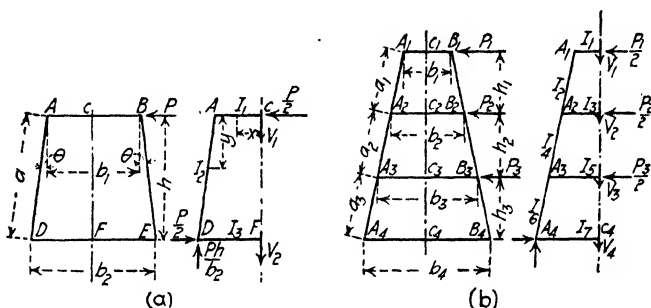 A c₁ B P
θ θ
b₁
a h
D F E
b₂
A I₁ c P/2
x y V₁
I₂
P/2 D I₃ F
Ph/b₂ V₂
(a)
(b)
A₁ c₁ B₁ P₁
b₁
a₁ h₁
A₂ c₂ B₂ P₂
b₂
a₂ h₂
A₃ c₃ B₃ P₃
b₃
a₃ h₃
A₄ c₄ B₄
b₄
A₁ I₁ P₁/2
V₁
I₂
A₂ I₃ P₂/2
V₂
I₄
A₃ I₅ P₃/2
V₃
I₆
A₄ I₇ c₄
V₄